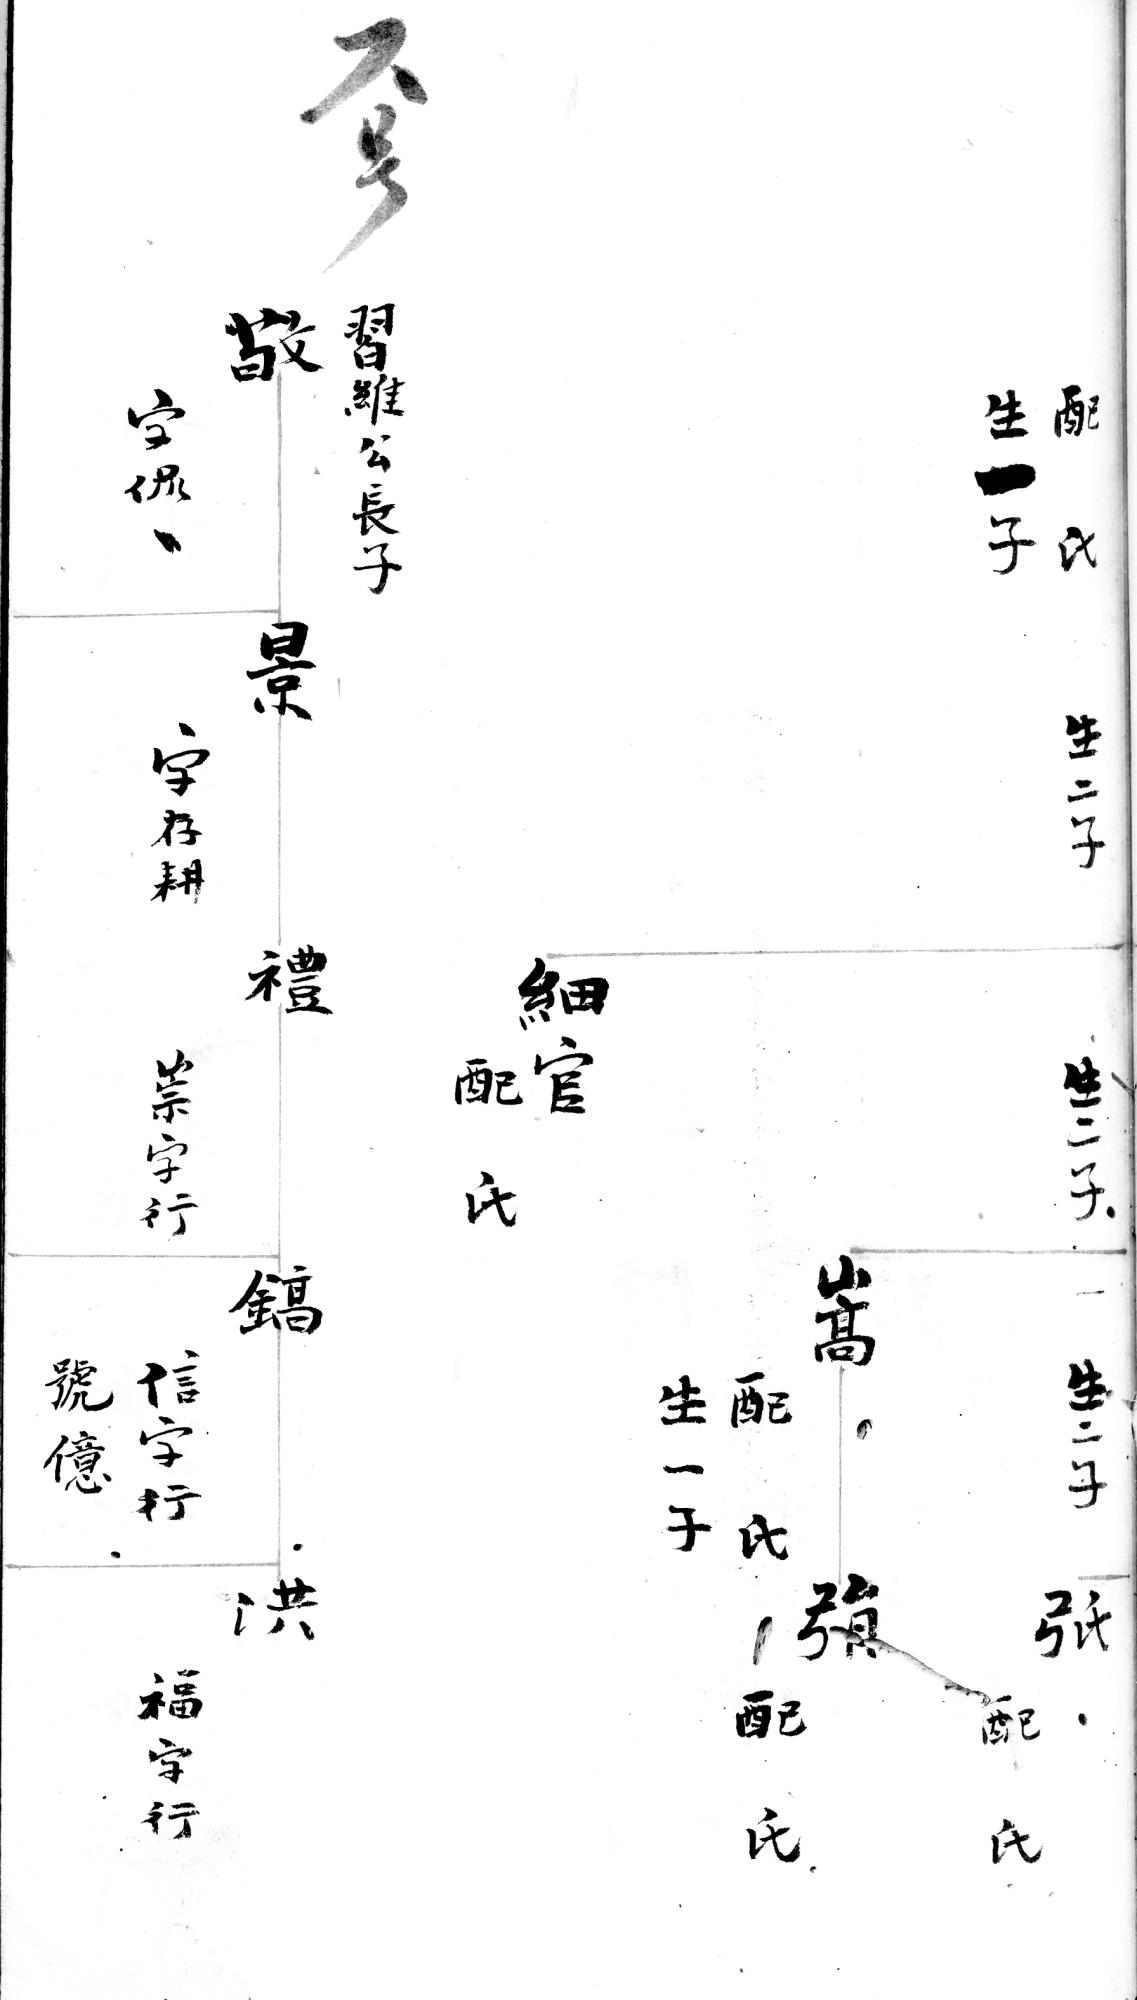 配 氏
生一子
習維公長子
敬
字侃
生二子
景
字存耕
生二子
細官
配 氏
禮
崇字行
生二子
嵩
配 氏
生一子
鎬
信字行
號億
弤
配 氏
配 氏
洪
福字行